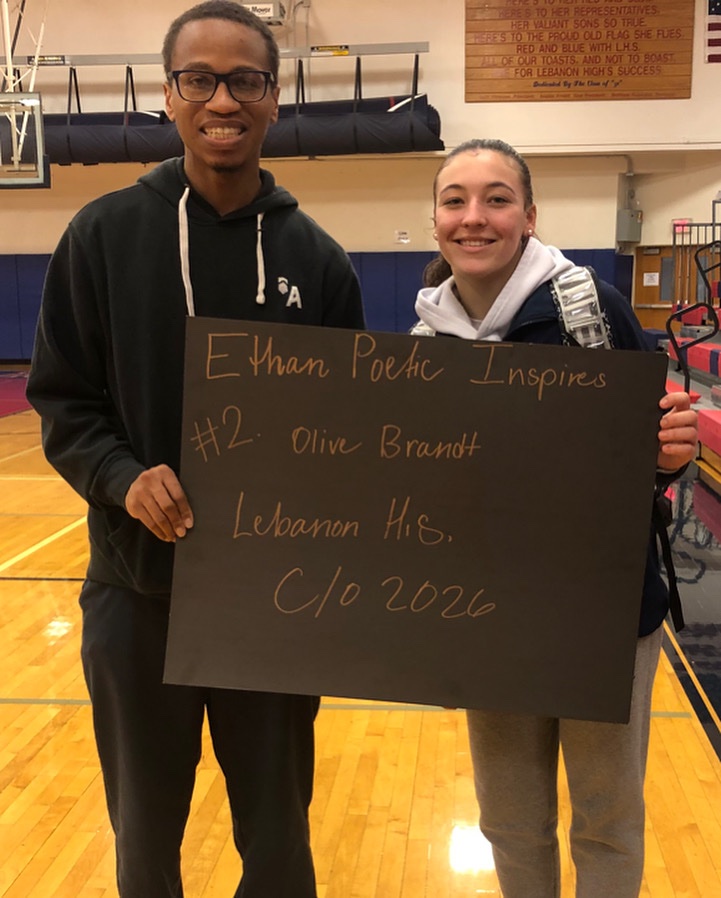 Mower
HERE'S TO HER REPRESENTATIVES,
HER VALIANT SONS SO TRUE.
HERE'S TO THE PROUD OLD FLAG SHE FLIES,
RED AND BLUE WITH L.H.S.
ALL OF OUR TOASTS, AND NOT TO BOAST,
FOR LEBANON HIGH'S SUCCESS.
Dedicated By the Class of
A
Ethan Poetic Inspires
#2. Olive Brandt
Lebanon H.S.
C/O 2026